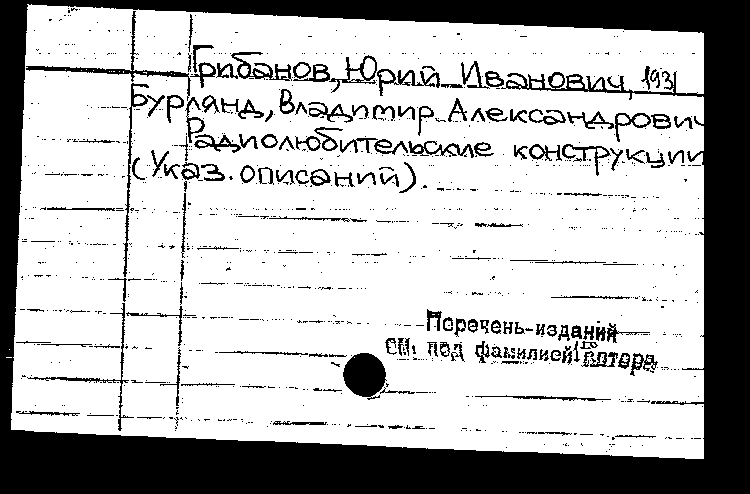 Грибанов, Юрий Иванович, 1931
Бурлянд, Владимир Александрович
Радиолюбительские конструкции
(Указ. описаний).
Перечень изданий
см. под фамилией 1го автора